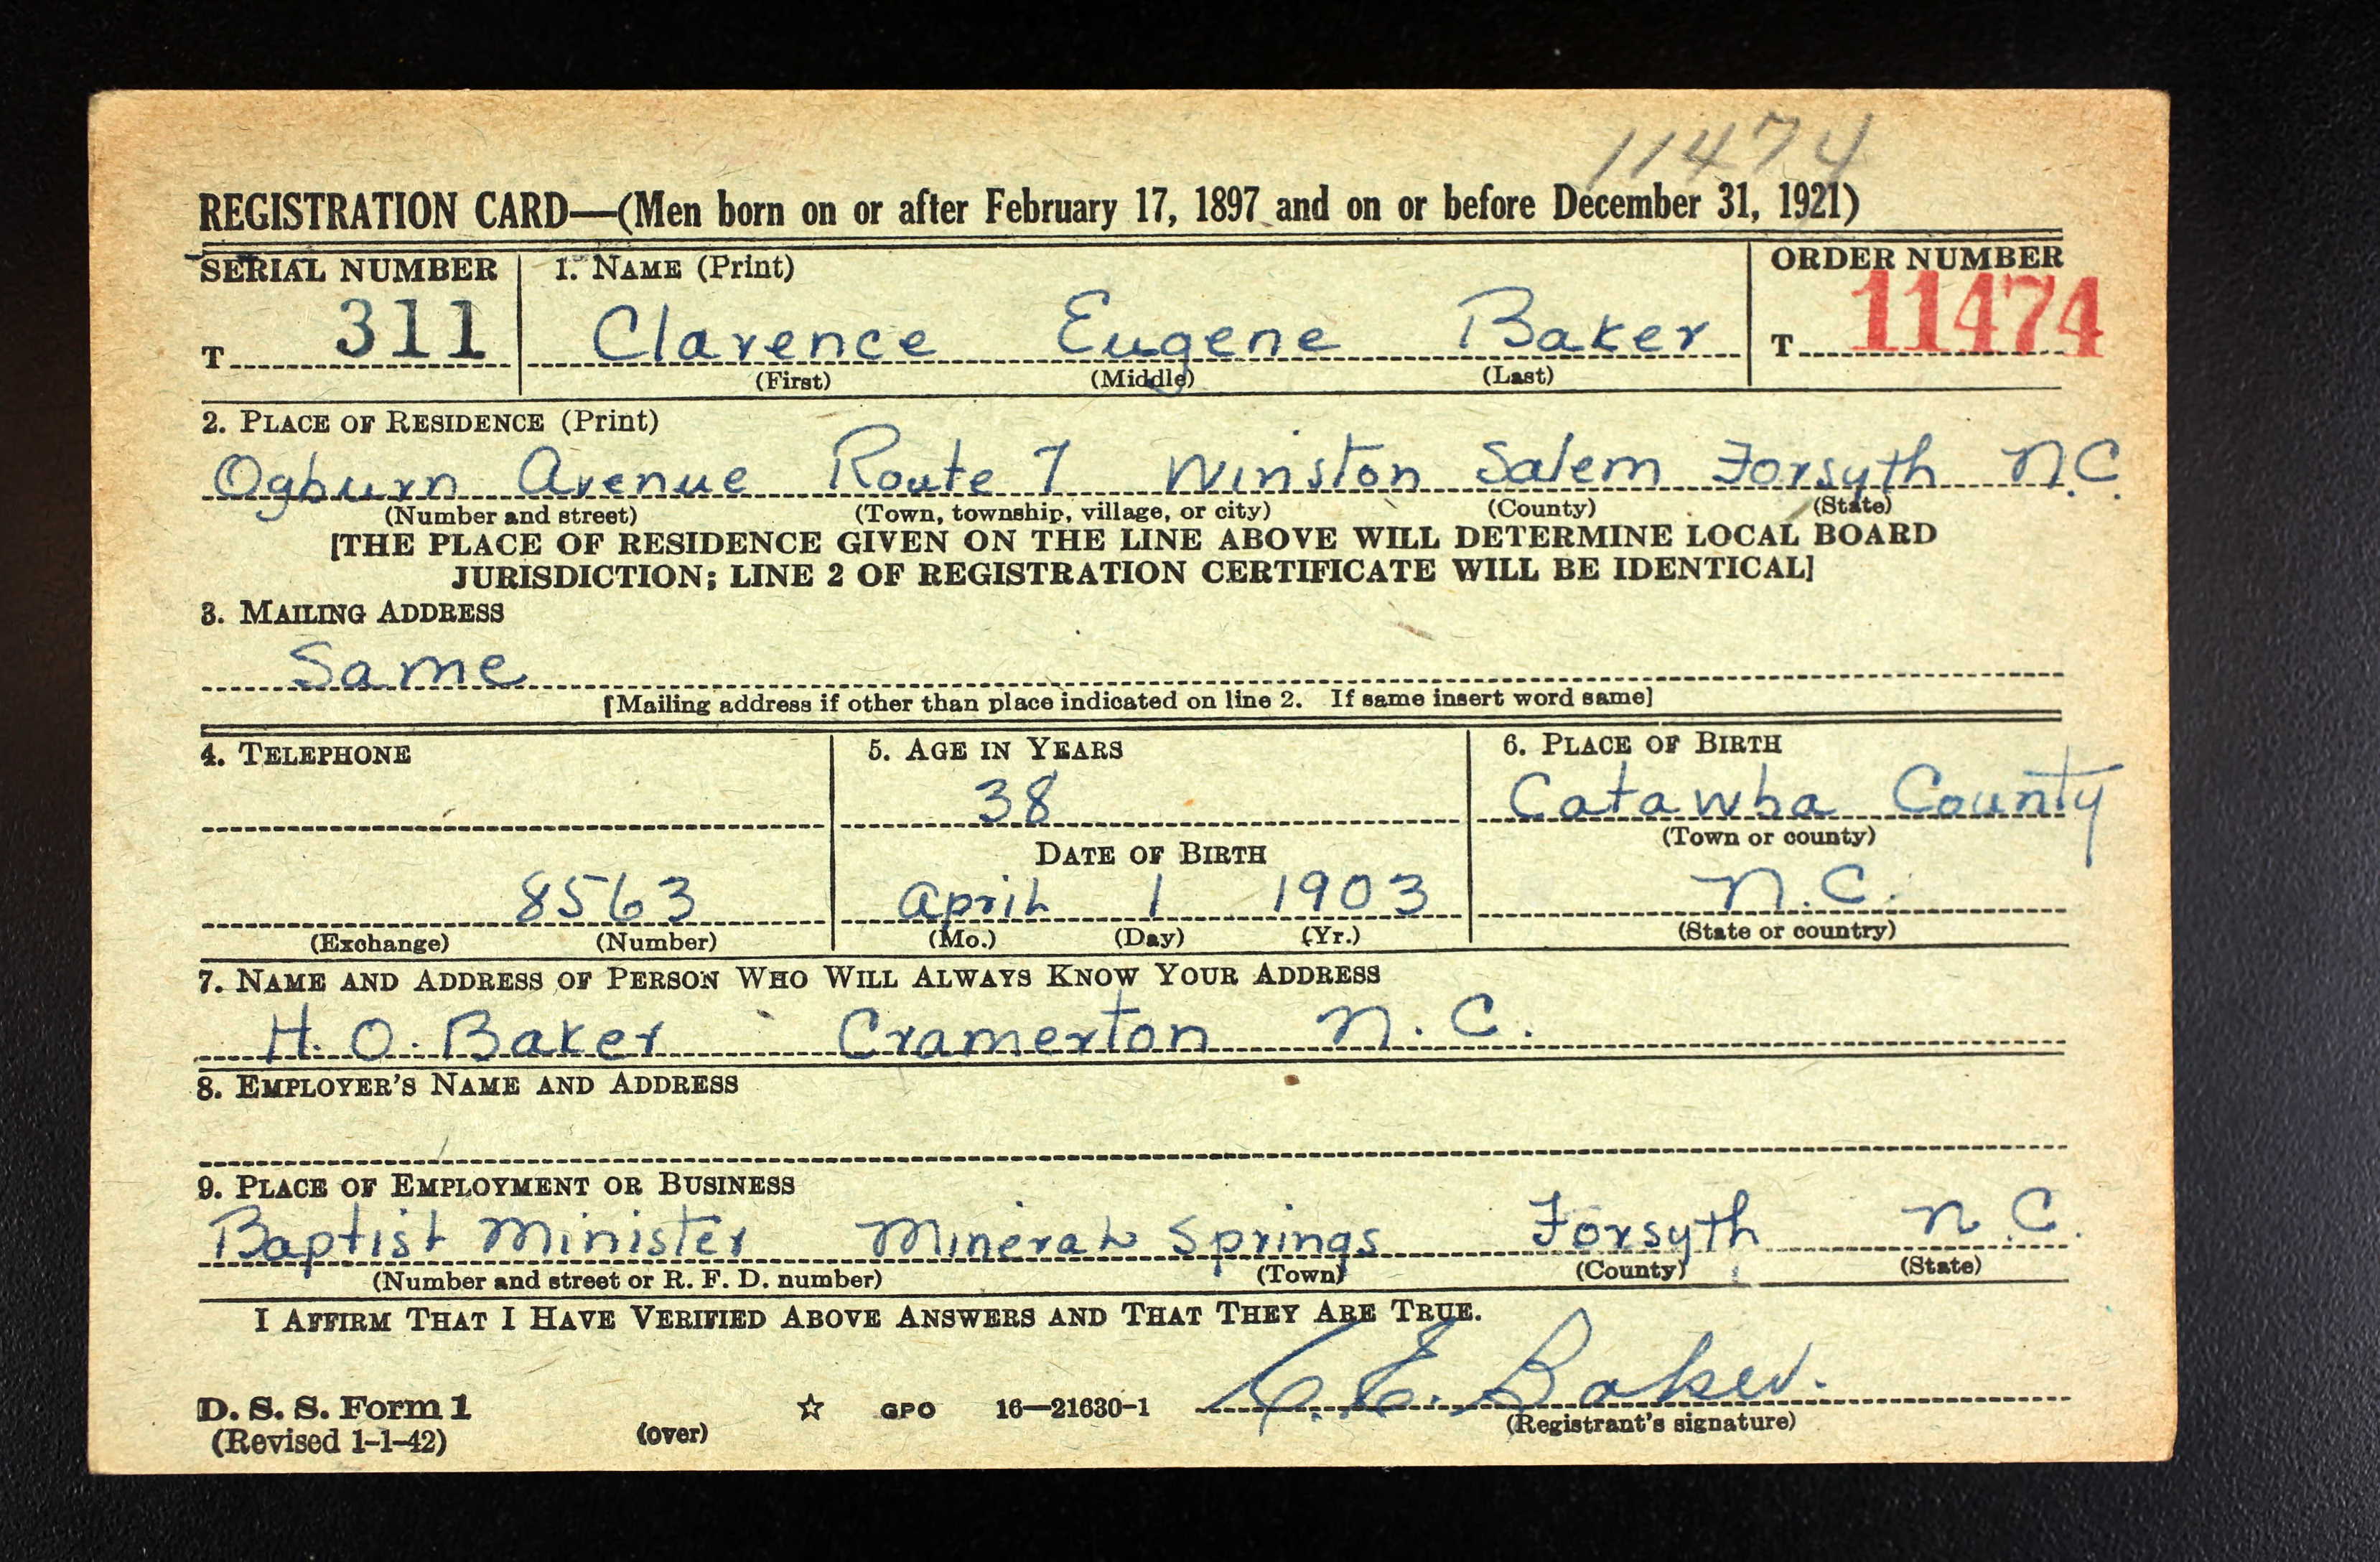 11474
REGISTRATION CARD—(Men born on or after February 17, 1897 and on or before December 31, 1921)
SERIAL NUMBER 1. NAME (Print) ORDER NUMBER
T 311 Clarence Eugene Baker T 11474
(First) (Middle) (Last)
2. PLACE OF RESIDENCE (Print)
Ogburn Avenue Route 7 Winston Salem Forsyth N.C.
(Number and street) (Town, township, village, or city) (County) (State)
[THE PLACE OF RESIDENCE GIVEN ON THE LINE ABOVE WILL DETERMINE LOCAL BOARD
JURISDICTION; LINE 2 OF REGISTRATION CERTIFICATE WILL BE IDENTICAL]
3. MAILING ADDRESS
Same
[Mailing address if other than place indicated on line 2. If same insert word same]
4. TELEPHONE 5. AGE IN YEARS 6. PLACE OF BIRTH
38 Catawba County
(Town or county)
DATE OF BIRTH
8563 April 1 1903 N.C.
(Exchange) (Number) (Mo.) (Day) (Yr.) (State or country)
7. NAME AND ADDRESS OF PERSON WHO WILL ALWAYS KNOW YOUR ADDRESS
H. O. Baker Cramerton N. C.
8. EMPLOYER'S NAME AND ADDRESS
9. PLACE OF EMPLOYMENT OR BUSINESS
Baptist Minister Mineral Springs Forsyth N.C.
(Number and street or R. F. D. number) (Town) (County) (State)
I AFFIRM THAT I HAVE VERIFIED ABOVE ANSWERS AND THAT THEY ARE TRUE.
C. E. Baker.
D. S. S. Form 1 GPO 16—21630-1 (Registrant's signature)
(Revised 1-1-42) (over)